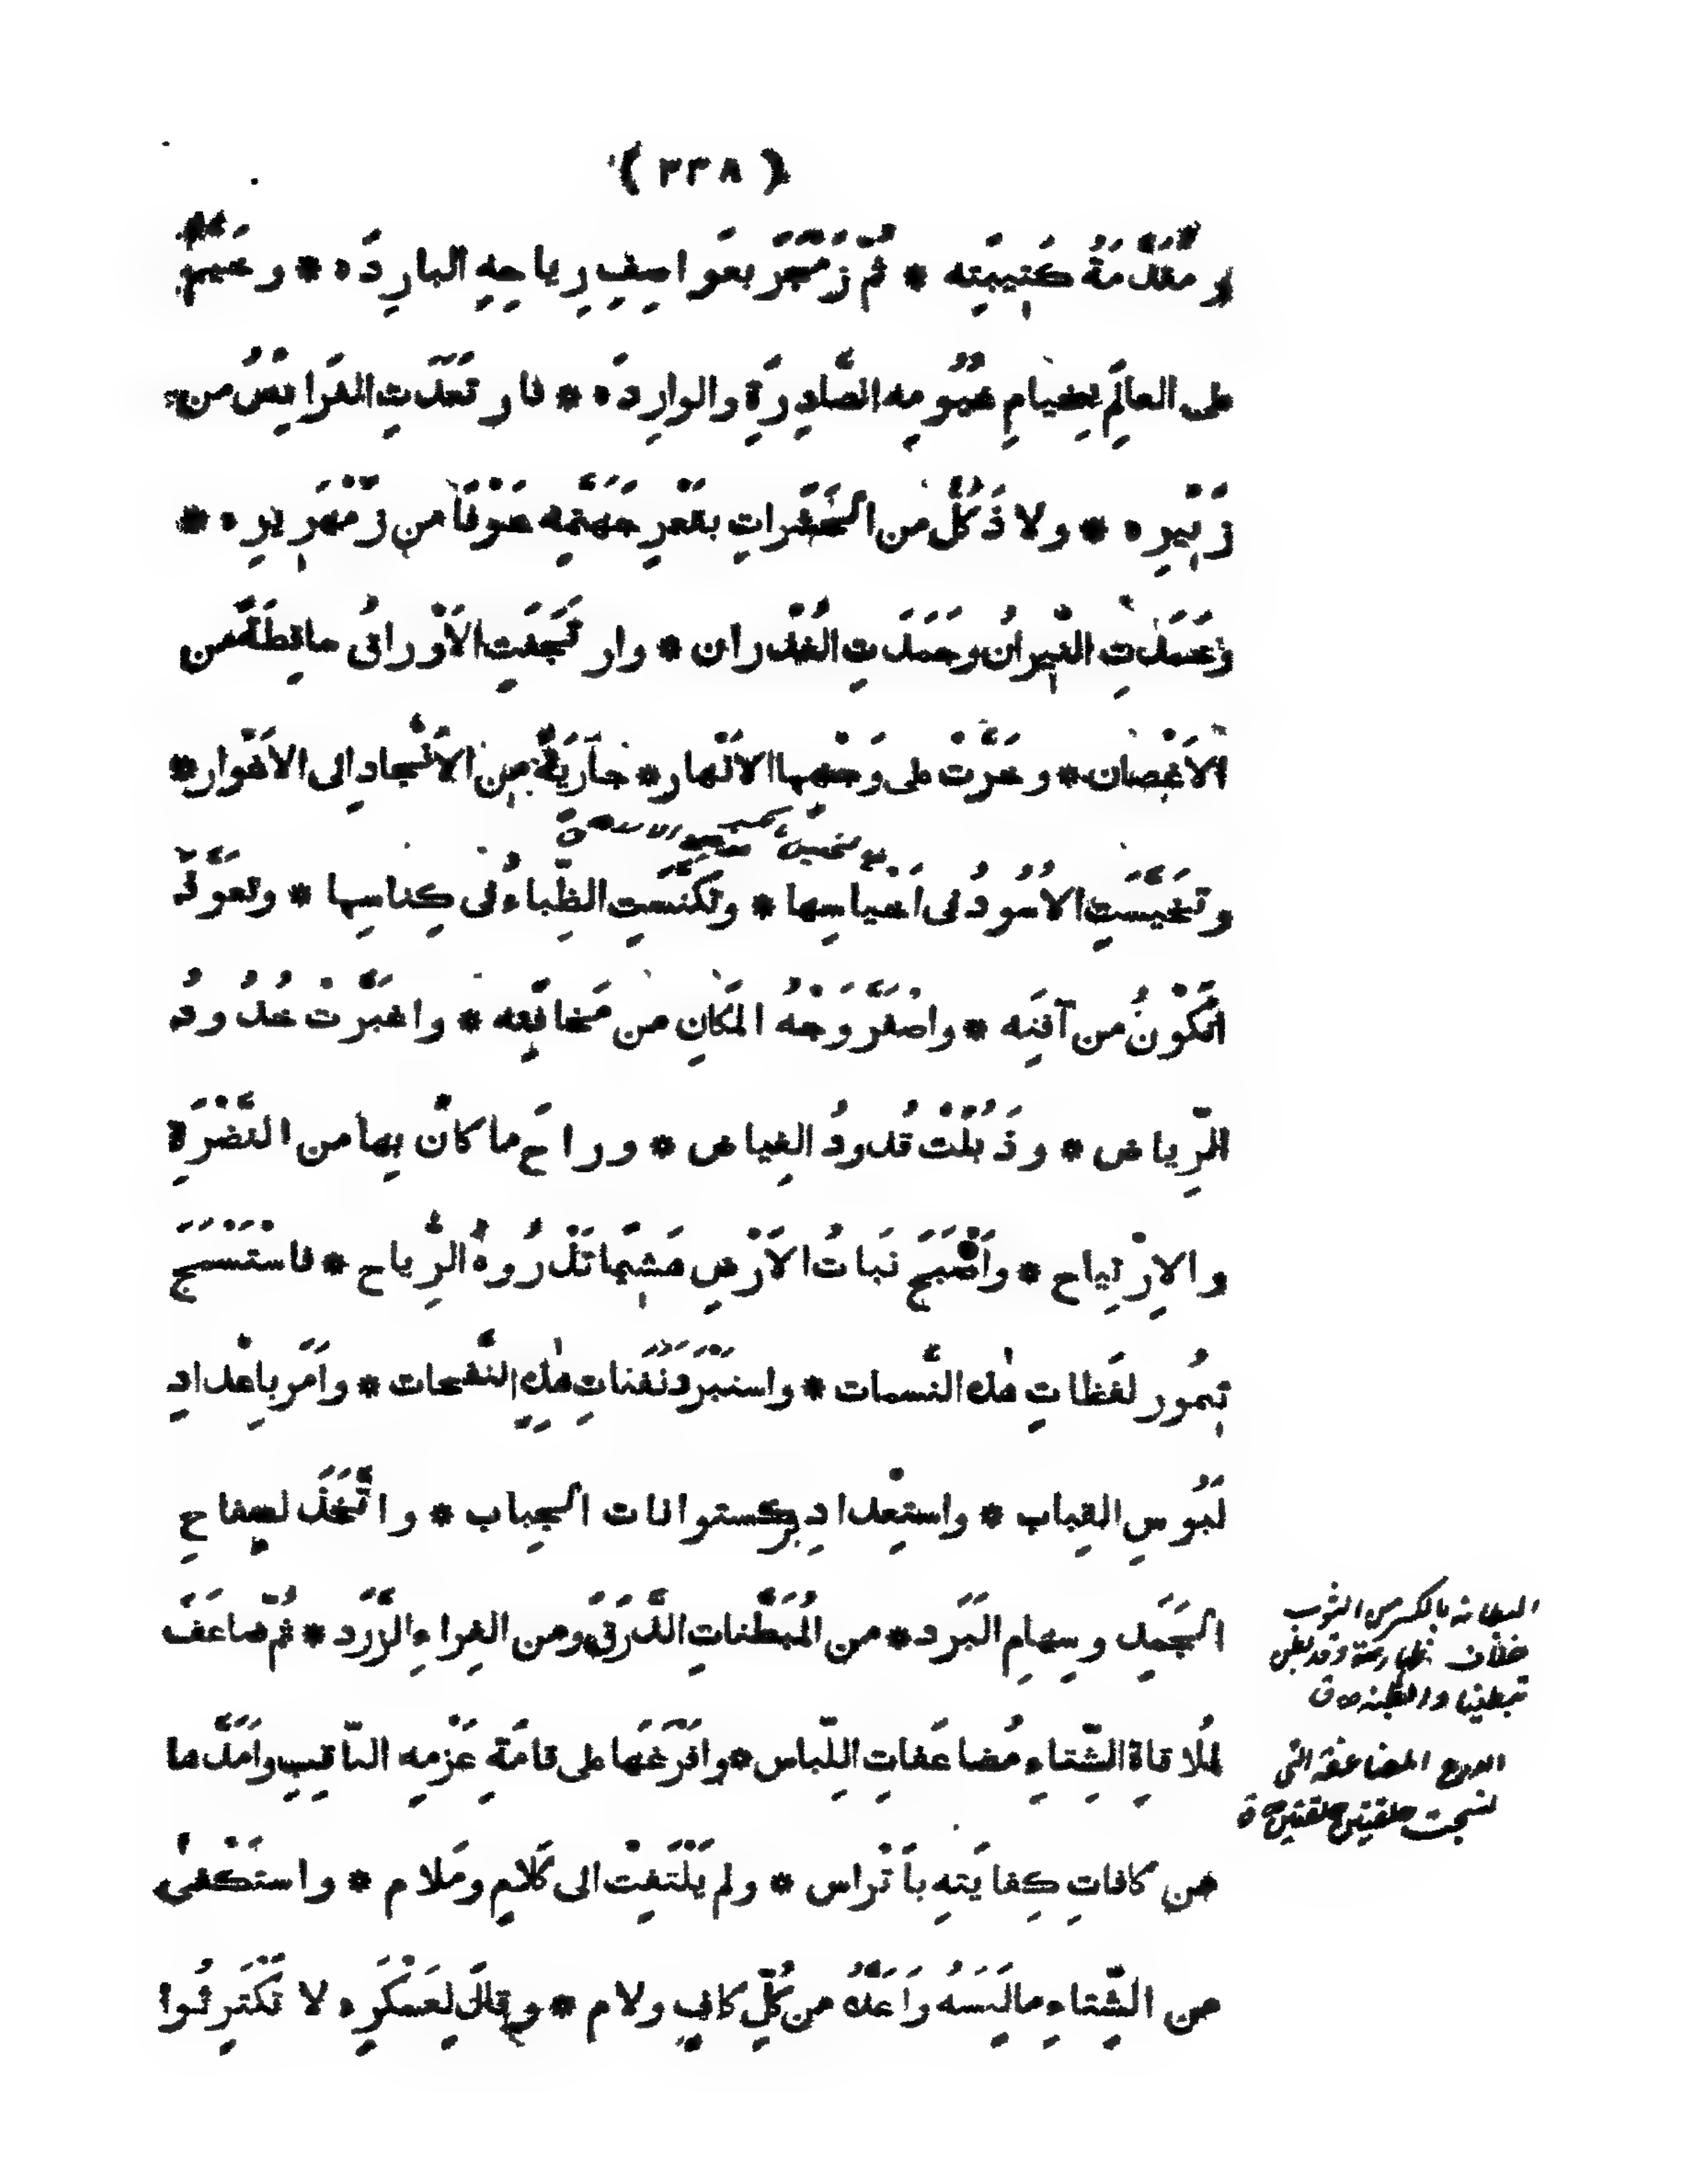 (٣٣٨)
ومُقَدَّمَةُ كَتِيبَتِه * ثُمَّ زَمْجَرَ بعَواصِفِ رِياحِهِ البارِدَه * وخَيَّمَ
على العالَمِ بخِيامِ غُيُومِه الصّادِرَةِ والوارِدَه * فارتَعَدَتِ الفَرائِصُ من
زَئِيرِه * ولاذَ كُلٌّ من الحَشَراتِ بقَعْرِ جَهَنَّمِه خَوْفًا من زَمْهَرِيرِه *
وخَمَدَتِ النِّيرانُ وجَمَدَتِ الغُدْران * وارتَجَفَتِ الأَوْراقُ ساقِطَةً من
الأَغْصان * وخَرَّتْ على وَجْهِها الأَنْهار * جارِيَةً من الأَنْجادِ الى الأَغْوار *
وتَخَيَّسَتِ الأُسُودُ فى أَخْياسِها * وتَكَنَّسَتِ الظِّباءُ فى كِناسِها * وتَعَوَّذَ
الكَوْنُ من آفَتِه * واصْفَرَّ وَجْهُ المَكانِ من مَخافَتِه * واغْبَرَّتْ خُدُودُ
الرِّياض * وذَبُلَتْ قُدودُ الغِياض * وراحَ ما كانَ بِها من النَّضْرَةِ
والاِرْتِياح * وأَصْبَحَ نَباتُ الأَرْضِ هَشِيمًا تَذْرُوهُ الرِّياح * فاسْتَسْمَجَ
تِيمُور لفَظاتِ هذه النَّسمات * واستَبْرَدَ نَفَثاتِ هذِهِ النَّفَحات * وأَمَرَ بإِعْدادِ
لَبُوسِ القِباب * واستِعْدادِ بركستوانات الجِباب * واتَّخَذَ لصِفاحِ
الجَمَدِ وسِهامِ البَرَد * من المُبَطَّناتِ الدَّرَقَ ومن الفِراءِ الزَّرَد * ثُمَّ ضاعَفَ
لمُلاقاةِ الشِّتاءِ مُضاعَفاتِ اللِّباس * وأَفْرَغَها على قامَةِ عَزْمِه الثاقِبِ وأَمَدَّها
من كافاتِ كِفايَتِه بأَتْراس * ولم يَلْتَفِتْ الى كَلامٍ ومَلام * واستَكْفى
من الشِّتاءِ ما لَبِسَهُ وأَعَدَّهُ من كُلِّ كافٍ ولام * وقالَ لِعَسْكَرِه لا تَكْتَرِثُوا
البطانة بالكسر من الثوب
خلاف ظهارته وقد بطن
تبطينا وابطنه ق
الدرع المضاعفة التى
نسجت حلقتين حلقتين ق